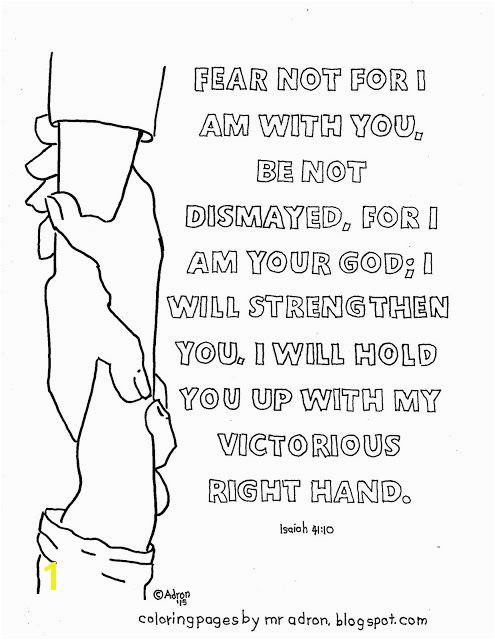 FEAR NOT FOR I
AM WITH YOU.
BE NOT
DISMAYED, FOR I
AM YOUR GOD; I
WILL STRENGTHEN
YOU. I WILL HOLD
YOU UP WITH MY
VICTORIOUS
RIGHT HAND.
Isaiah 41:10
1
©Adron
'15
coloringpages by mr adron. blogspot.com